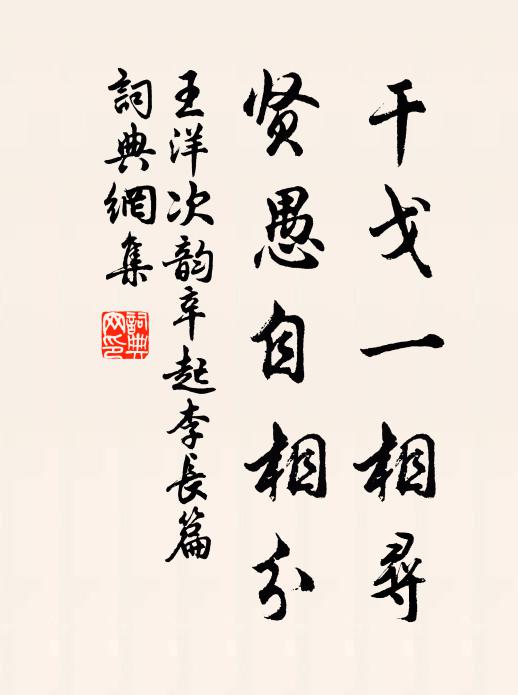 干戈一相尋
贤愚自相分
王洋次韵辛起李長篇
詞典網集
詞典网印